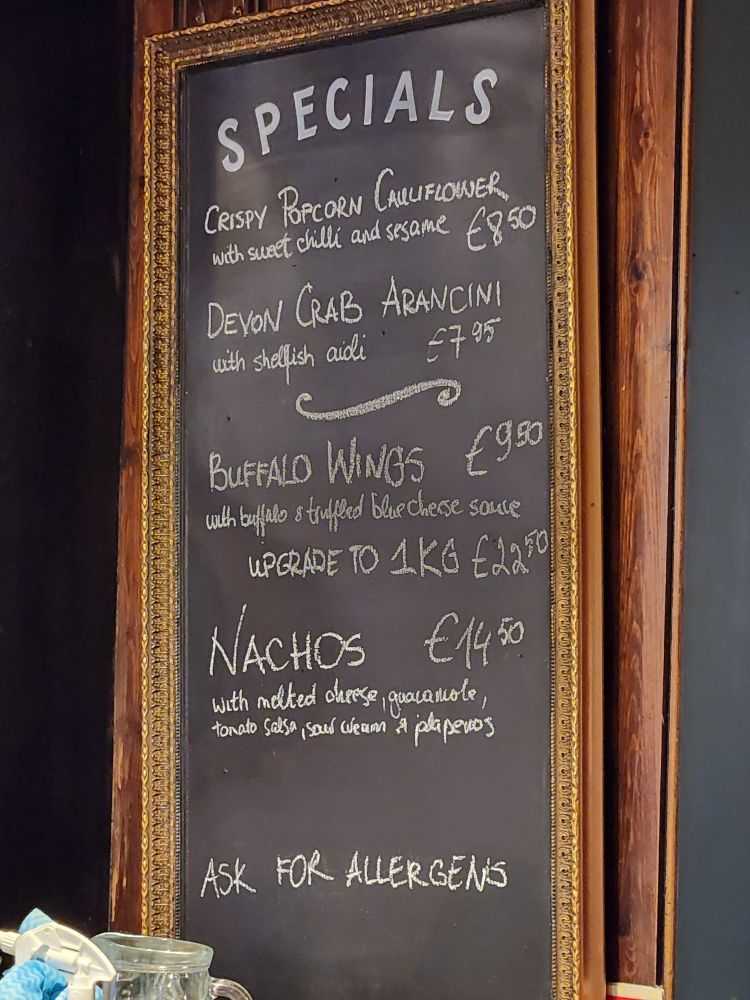 SPECIALS
CRISPY POPCORN CAULIFLOWER
with sweet chilli and sesame £8.50
DEVON CRAB ARANCINI
with shellfish aioli £7.95
BUFFALO WINGS £9.50
with buffalo & truffled blue cheese sauce
UPGRADE TO 1KG £22.50
NACHOS £14.50
with melted cheese, guacamole,
tomato salsa, sour cream & jalapenos
ASK FOR ALLERGENS